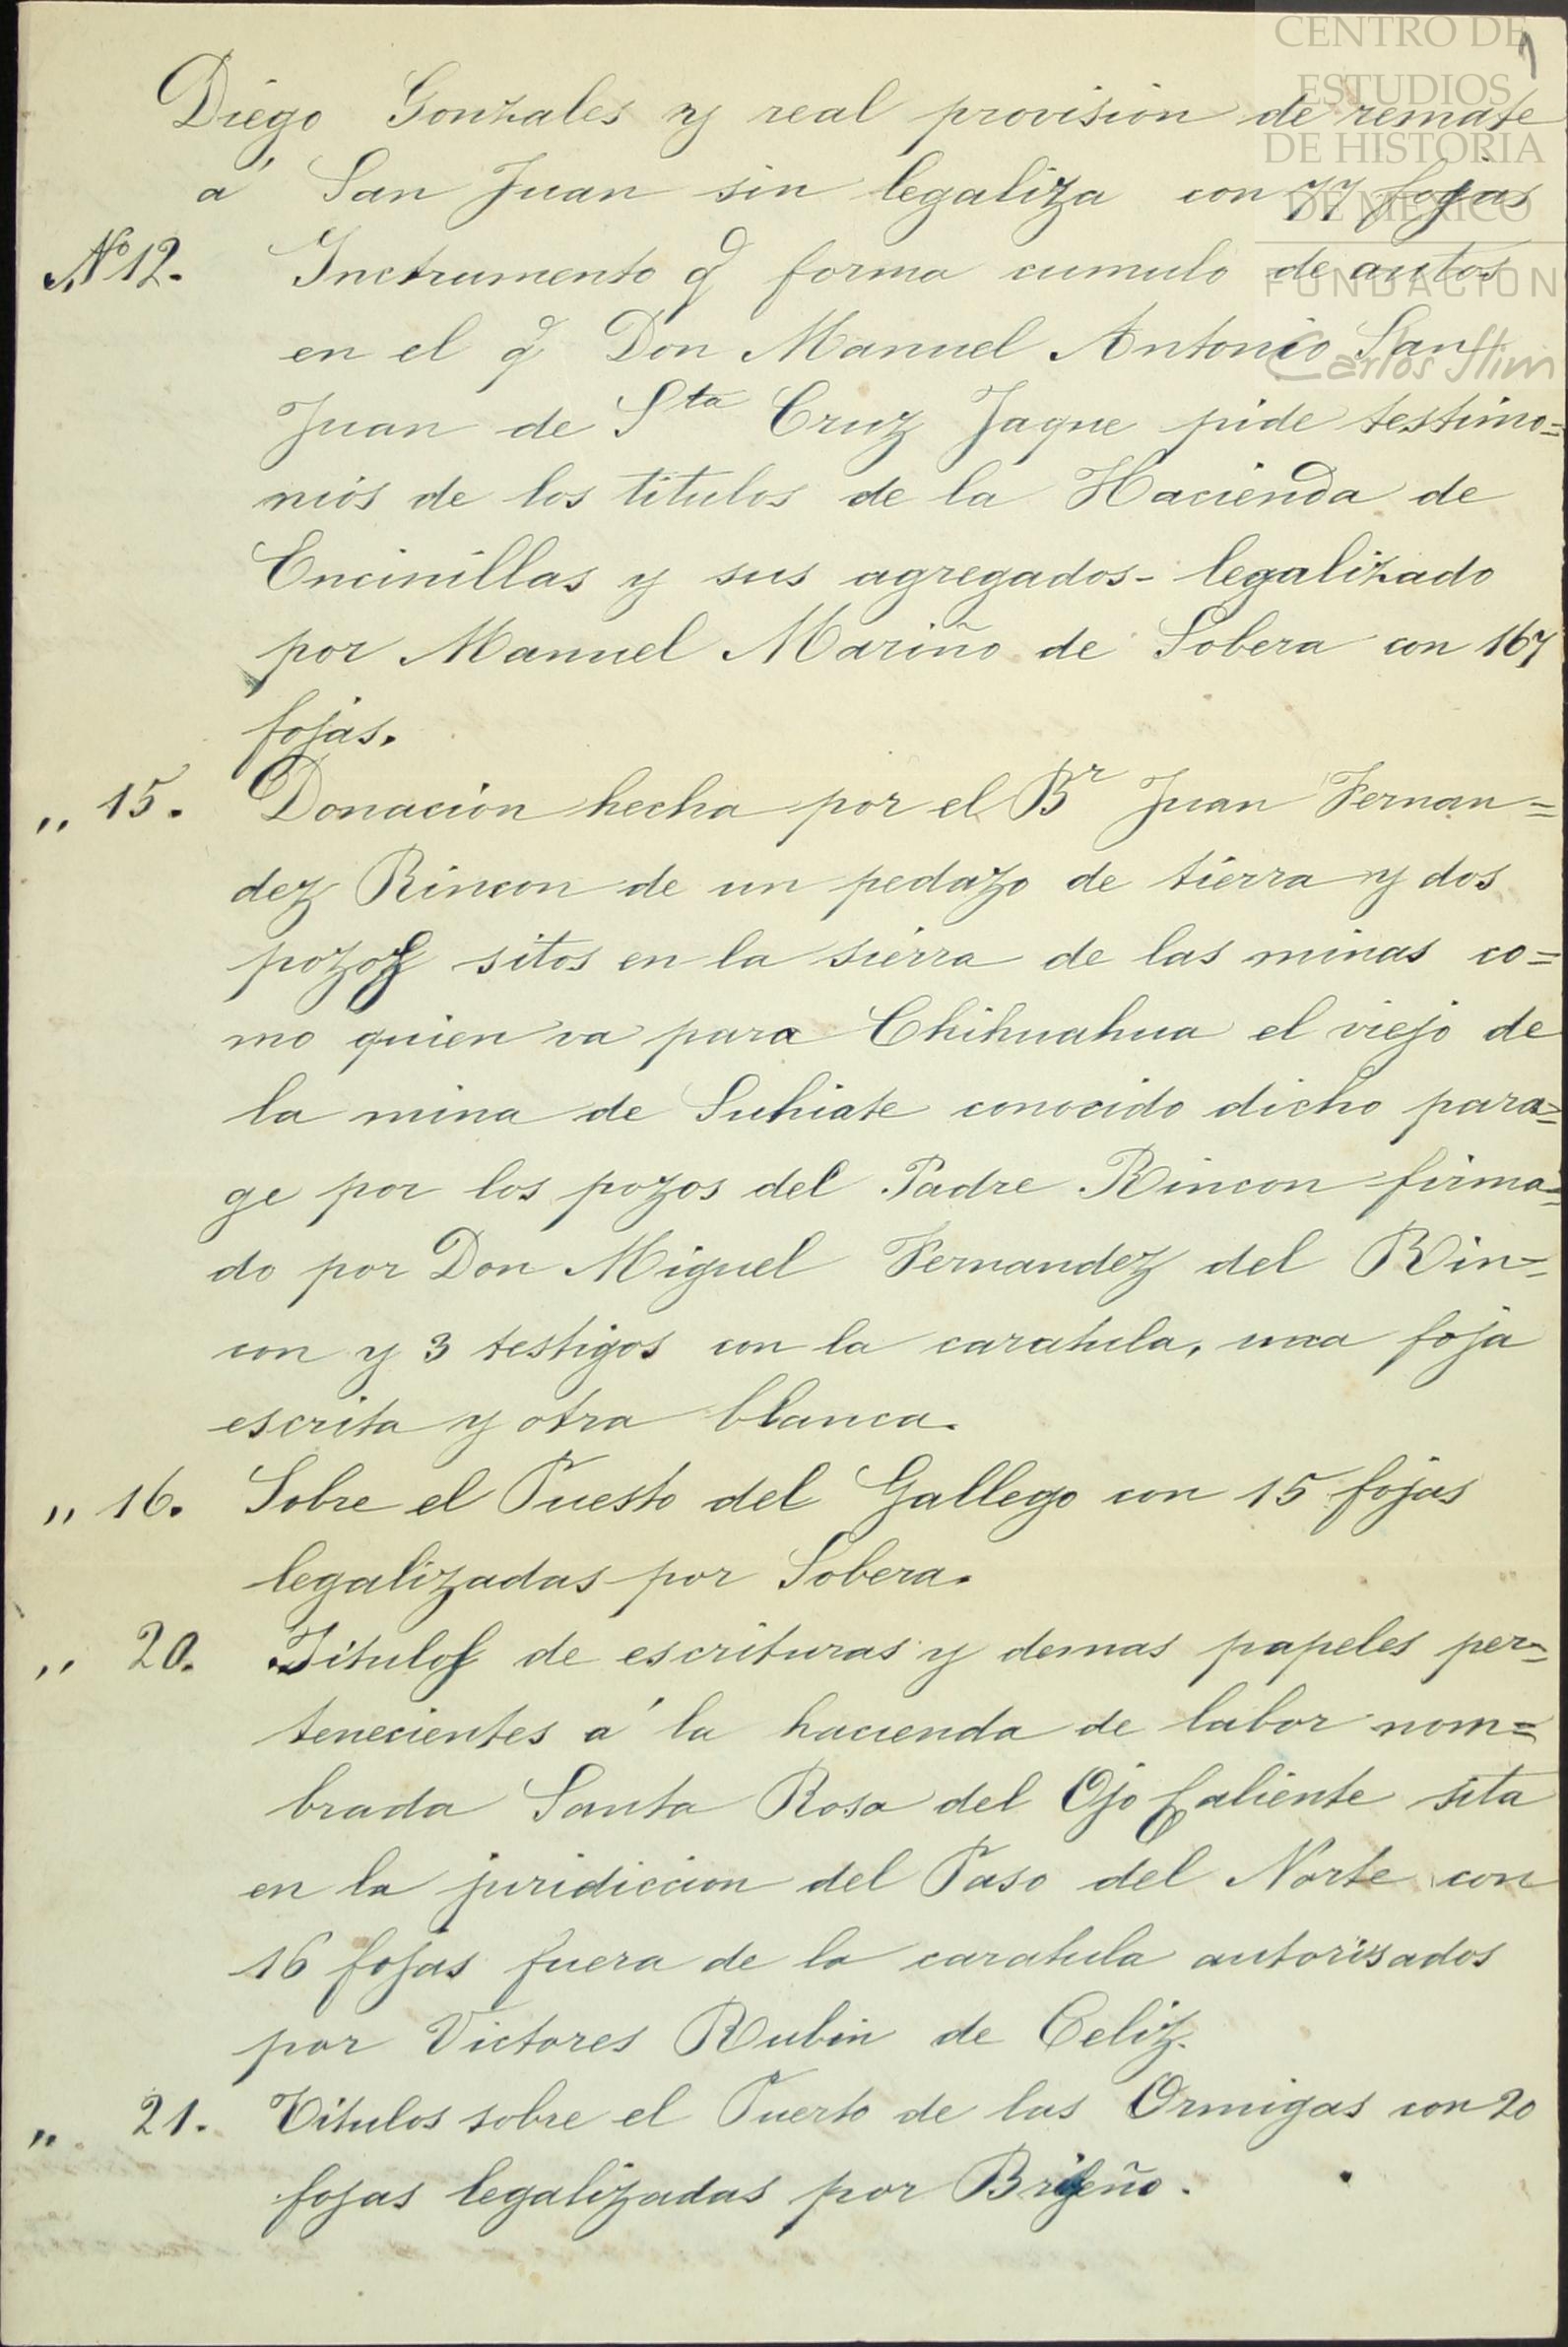 CENTRO DE
ESTUDIOS
DE HISTORIA
DE MÉXICO
FUNDACIÓN
Carlos Slim
Diego Gonzales y real provision de remate
á San Juan sin legaliza con 77 fojas
Nº 12. Inctrumento q̃ forma cumulo de autos
en el q̃ Don Manuel Antonio San
Juan de Sta Cruz Jaque pide testimo=
nios de los titulos de la Hacienda de
Encinillas y sus agregados - legalizado
por Manuel Mariño de Sobera con 167
fojas.
„ 15. Donacion hecha por el Br Juan Fernan=
dez Rincon de un pedazo de tierra y dos
pozos sitos en la sierra de las minas co=
mo quien va para Chihuahua el viejo de
la mina de Suhiate conocido dicho para=
ge por los pozos del Padre Rincon firma=
do por Don Miguel Fernandez del Rin=
con y 3 testigos con la caratula, una foja
escrita y otra blanca.
„ 16. Sobre el Puesto del Gallego con 15 fojas
legalizadas por Sobera.
„ 20. Titulos de escrituras y demas papeles per=
tenecientes á la hacienda de labor nom=
brada Santa Rosa del Ojo Caliente sita
en la juridiccion del Paso del Norte con
16 fojas fuera de la caratula autorisados
por Victores Rubin de Celiz.
„ 21. Titulos sobre el Puerto de las Ormigas con 20
fojas legalizadas por